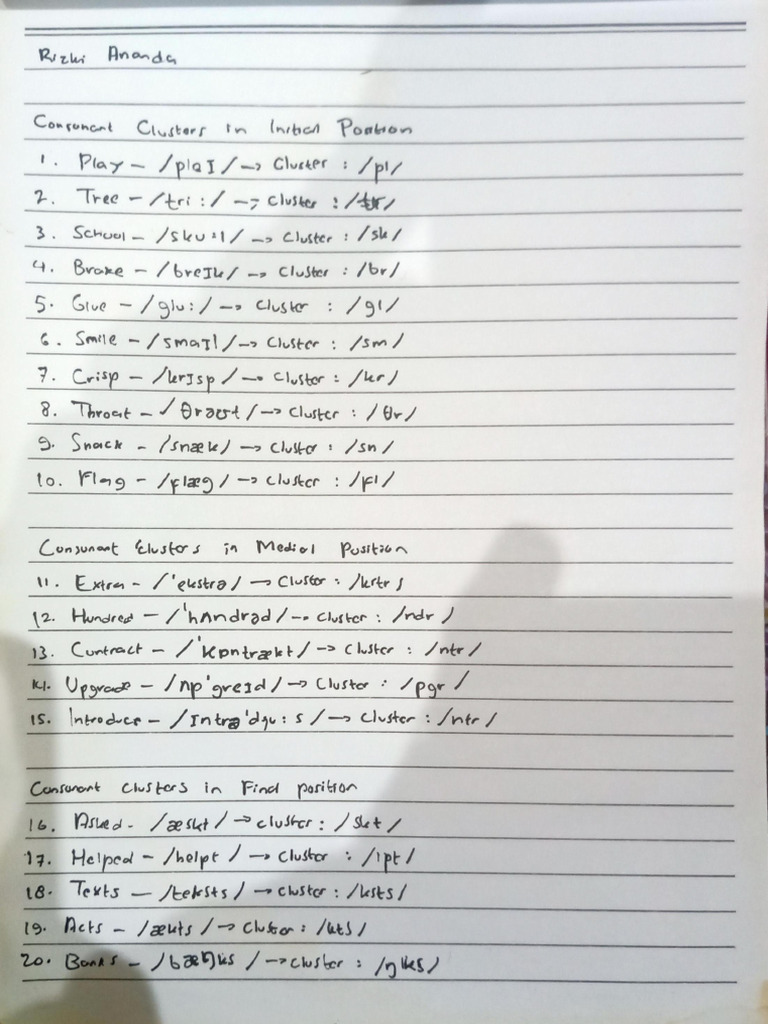 Rizki Ananda
Consonant Clusters in Initial Position
1. Play – /plaI/ –> Cluster : /pl/
2. Tree – /tri:/ –> Cluster : /tr/
3. School – /sku:l/ –> Cluster : /sk/
4. Brake – /breIk/ –> Cluster : /br/
5. Glue – /glu:/ –> Cluster : /gl/
6. Smile – /smaIl/ –> Cluster : /sm/
7. Crisp – /krIsp/ –> Cluster : /kr/
8. Throat – /θrəʊt/ –> Cluster : /θr/
9. Snack – /snæk/ –> Cluster : /sn/
10. Flag – /flæg/ –> Cluster : /fl/
Consonant Clusters in Medial Position
11. Extra – /'ekstrə/ –> Cluster : /kstr/
12. Hundred – /'hʌndrəd/ –> Cluster : /ndr/
13. Contract – /'kɒntrækt/ –> Cluster : /ntr/
14. Upgrade – /ʌp'greId/ –> Cluster : /pgr/
15. Introduce – /Intrə'dju:s/ –> Cluster : /ntr/
Consonant Clusters in Final position
16. Asked – /æskt/ –> cluster : /skt/
17. Helped – /helpt/ –> Cluster : /lpt/
18. Texts – /teksts/ –> cluster : /ksts/
19. Acts – /ækts/ –> Cluster : /kts/
20. Banks – /bæŋks/ –> cluster : /ŋks/